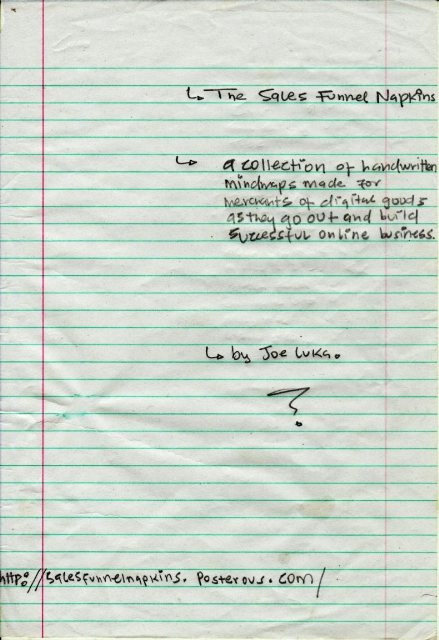 ↳ The Sales Funnel Napkins
↳ a collection of handwritten
mindmaps made for
merchants of digital goods
as they go out and build
sucessful online business.
↳ by Joe Luka.
?
http://salesfunnelnapkins.posterous.com/